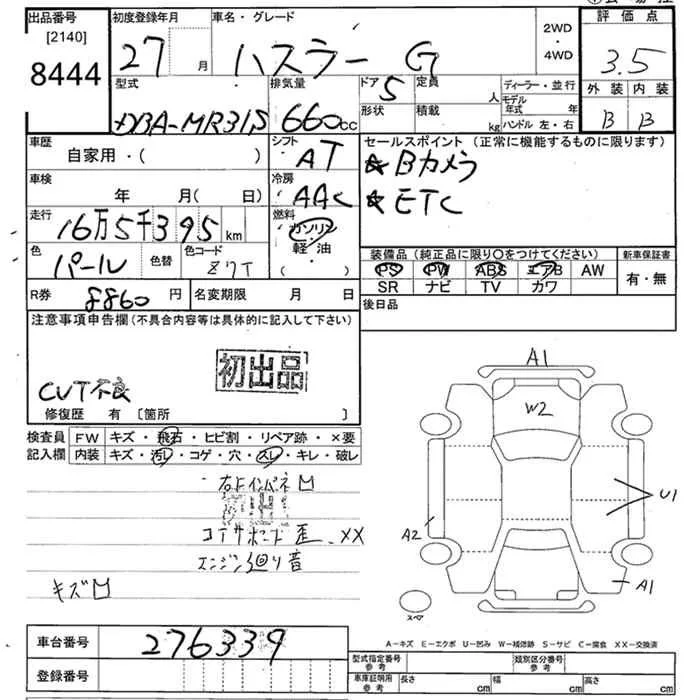 出品番号 初度登録年月 車名・グレード 2WD・4WD 評価点
[2140]
8444 27 月 ハスラー G 3.5
型式 排気量 ドア 5 定員 人 ディーラー・並行 外装 内装
DBA-MR31S 660cc 形状 積載 kg モデル年式 年 ハンドル 左・右 B B
車歴 シフト セールスポイント (正常に機能するものに限ります)
自家用・( ) AT ★Bカメラ
車検 冷房 ★ETC
年 月( 日) AAC
走行 燃料
16万5千395 km ガソリン
軽・油
( )
色 色替 色コード 装備品 (純正品に限り○をつけてください) 新車保証書
パール Z7T PS PW ABS エアB AW 有・無
SR ナビ TV カワ
R券 8860 円 名変期限 月 日 後日品
注意事項申告欄 (不具合内容等は具体的に記入して下さい)
初出品
CVT不良
修復歴 有 [箇所 ]
検査員 FW キズ・飛石・ヒビ割・リペア跡・×要
記入欄 内装 キズ・汚レ・コゲ・穴・スレ・キレ・破レ
コアサポート歪 XX
エンジン廻り音
キズ
A1
W2
U1
A2
A1
スペア
A-キズ E-エクボ U-凹み W-補修跡 S-サビ C-腐食 XX-交換済
車台番号 276339
登録番号
型式指定番号 参考 類別区分番号 参考
車庫証明用 参考 長さ cm 幅 cm 高さ cm